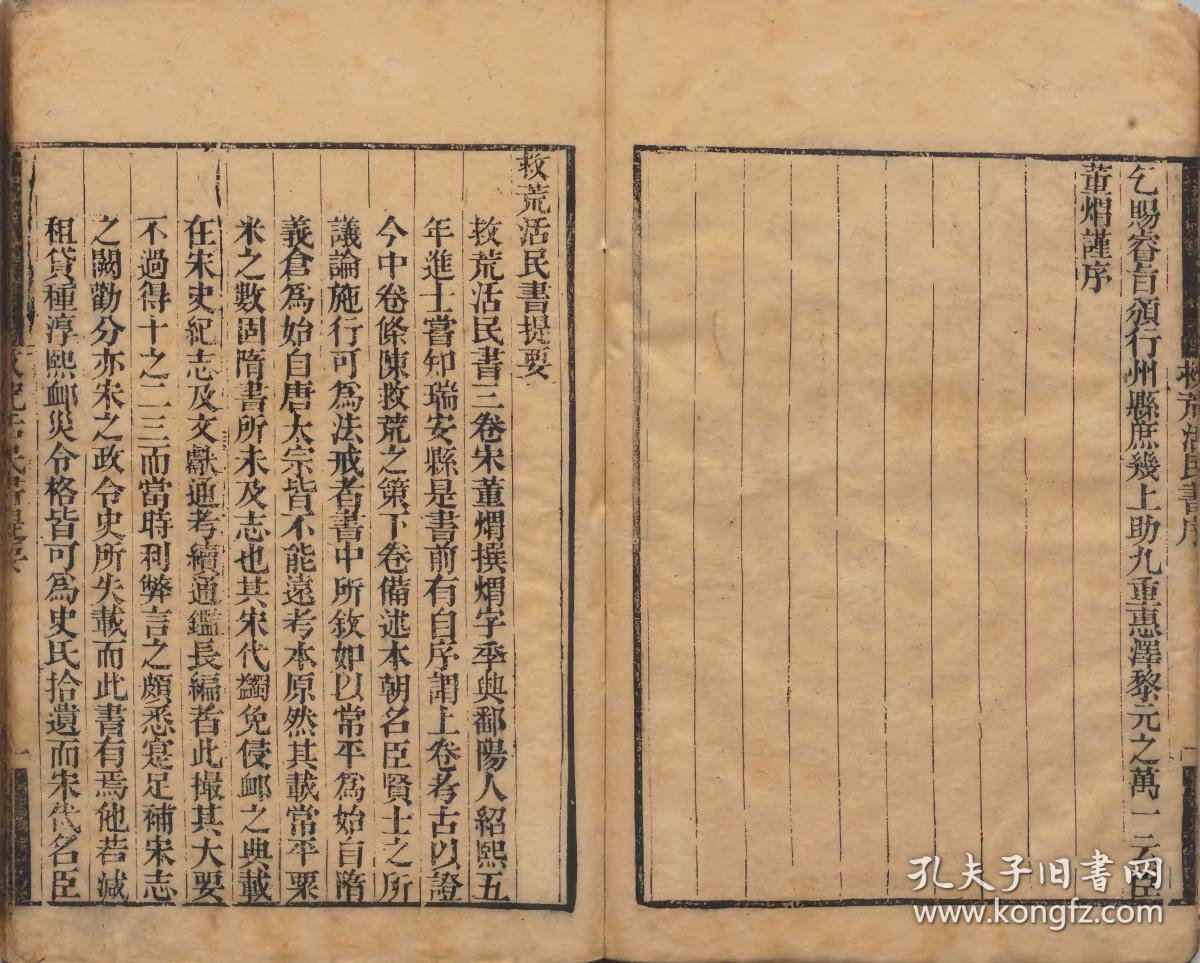 乞賜睿旨頒行州縣庶幾上助九重惠澤黎元之萬一云臣
董煟謹序
救荒活民書序
救荒活民書提要
救荒活民書三卷宋董煟撰煟字季興鄱陽人紹熙五
年進士嘗知瑞安縣是書前有自序謂上卷考古以證
今中卷條陳救荒之策下卷備述本朝名臣賢士之所
議論施行可為法戒者書中所敘如以常平為始自隋
義倉為始自唐太宗皆不能遠考本原然其載常平粟
米之數固隋書所未及志也其宋代蠲免優邺之典載
在宋史紀志及文獻通考續通鑑長編者此撮其大要
不過得十之二三而當時利弊言之頗悉寔足補宋志
之闕勸分亦宋之政令史所失載而此書有焉他若減
租貸種淳熙邺災令格皆可為史氏拾遺而宋代名臣
救荒活民書提要
一
孔夫子旧书网
www.kongfz.com